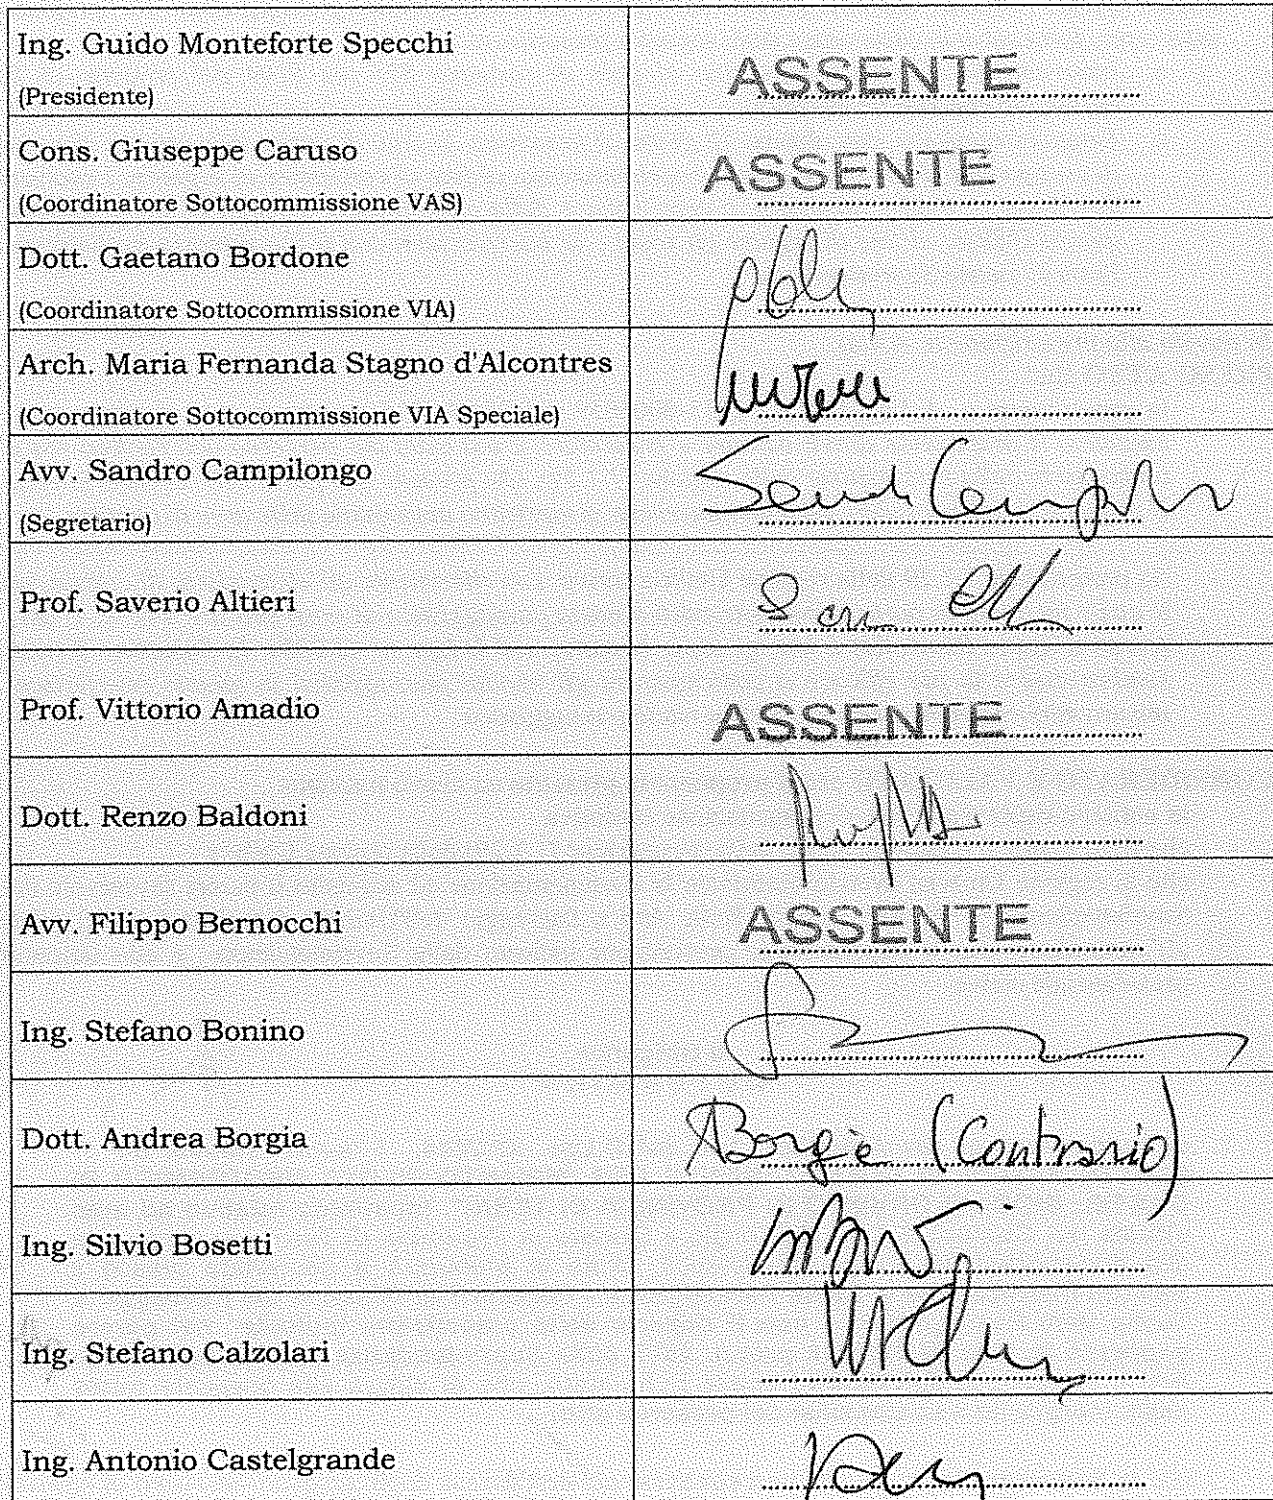 Ing. Guido Monteforte Specchi
(Presidente)
ASSENTE
Cons. Giuseppe Caruso
(Coordinatore Sottocommissione VAS)
ASSENTE
Dott. Gaetano Bordone
(Coordinatore Sottocommissione VIA)
Arch. Maria Fernanda Stagno d'Alcontres
(Coordinatore Sottocommissione VIA Speciale)
Avv. Sandro Campilongo
(Segretario)
Prof. Saverio Altieri
Prof. Vittorio Amadio
ASSENTE
Dott. Renzo Baldoni
Avv. Filippo Bernocchi
ASSENTE
Ing. Stefano Bonino
Dott. Andrea Borgia
ABorgia (Contrario)
Ing. Silvio Bosetti
Ing. Stefano Calzolari
Ing. Antonio Castelgrande